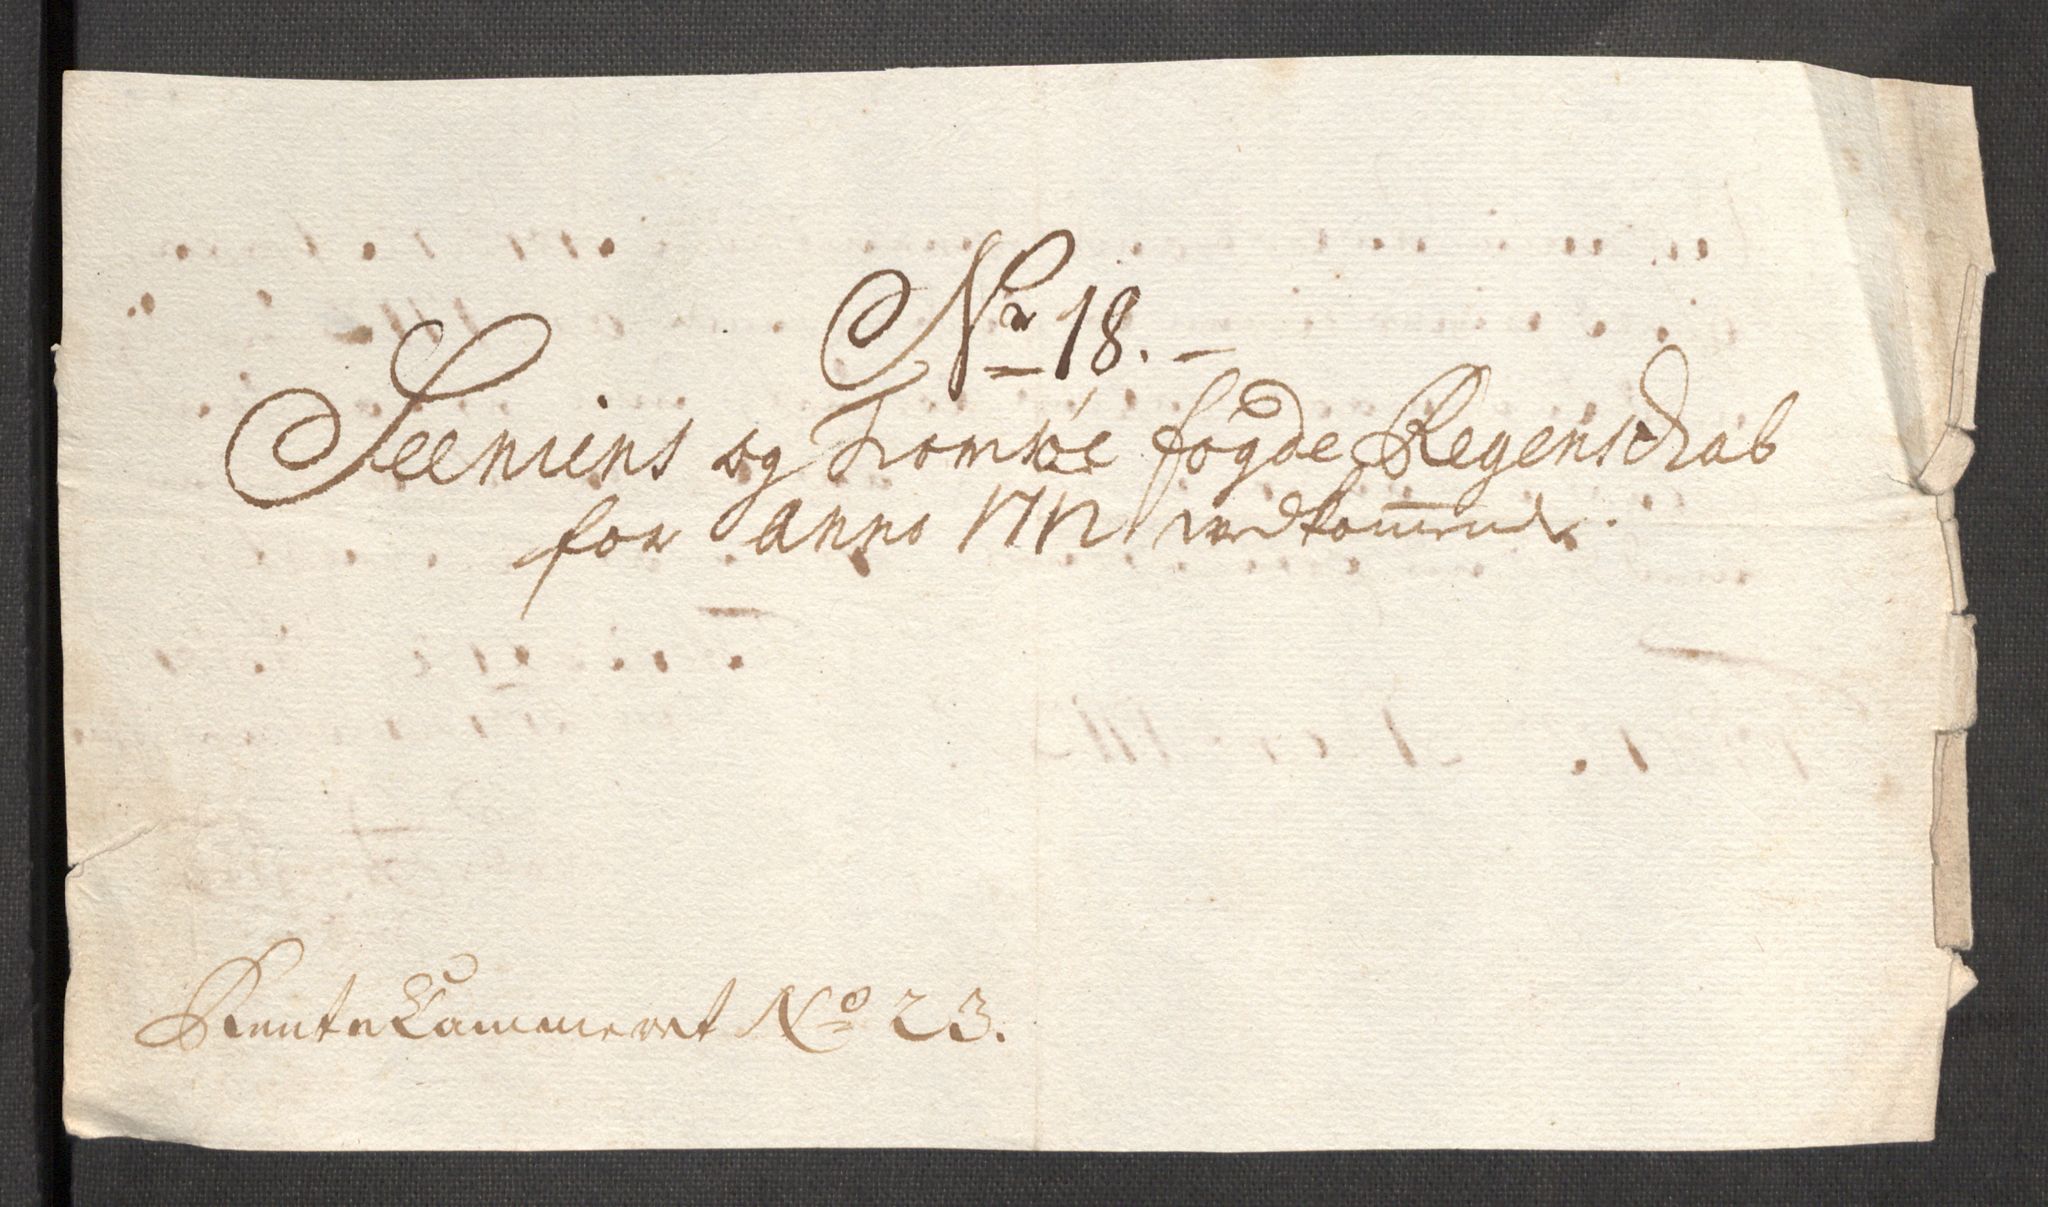 Nr 18. –
Seeniens og Tromsøe fogde Regenschab
for Anno 1712 vedkommende.
Rente Cammeret No 23.